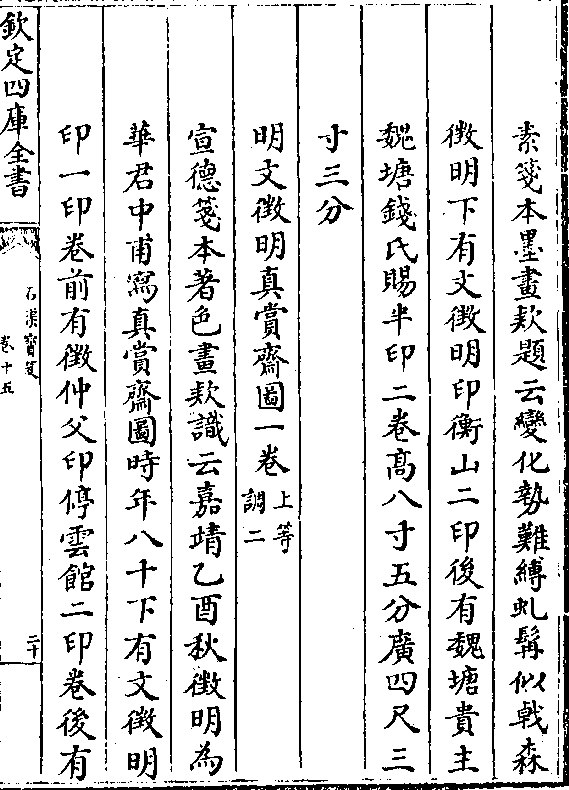 素箋本墨畫欵題云變化勢難縛虬髯似戟森
徴明下有文徴明印衡山二印後有魏塘貴主
魏塘錢氏賜半印二卷高八寸五分廣四尺三
寸三分
明文徴明真賞齋圖一卷 上等
調二
宣德箋本著色畫欵識云嘉靖乙酉秋徴明為
華君中甫寫真賞齋圖時年八十下有文徴明
印一印卷前有徴仲父印停雲館二印卷後有
欽定四庫全書
石渠寶笈
卷十五
二十